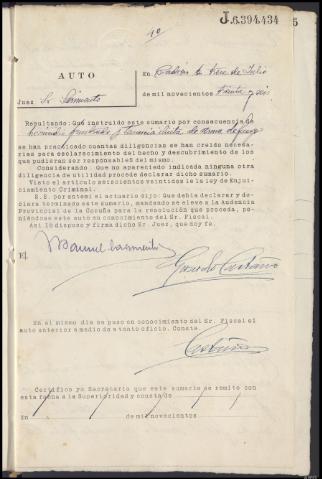 J.6.394.434 5
10
AUTO
En Padrón a trece de Julio
Juez Sr Sarmiento
de mil novecientos treinta y seis
Resultando: Que instruido este sumario por consecuencia de
homicidio frustrado y tenencia ilícita de arma de fuego
se han practicado cuantas diligencias se han creído necesa-
rias para esclarecimiento del hecho y descubrimiento de los
que pudieran ser responsables del mismo.
Considerando: Que no apareciendo indicada ninguna otra
diligencia de utilidad procede declarar dicho sumario.
Visto el artículo seiscientos veintidós de la ley de Enjui-
ciamiento Criminal.
S.S. por ante mí el actuario dijo: Que debía declarar y de-
clara terminado este sumario, mandando se eleve a la Audencia
Provincial de la Coruña para la resolución que proceda, po-
niéndose este auto en conocimiento del Sr. Fiscal.
Así lo dispuso y firma dicho Sr. Juez, que doy fe.
Manuel Sarmiento
En el mismo día se puso en conocimiento del Sr. Fiscal el
auto anterior a medio de atento oficio. Consta.
Certifico yo Secretario que este sumario se remite con
esta fecha a la Superioridad y consta de
En de mil novecientos